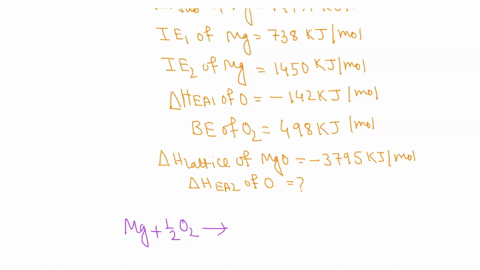 IE1 of Mg = 738 KJ/mol
IE2 of Mg = 1450 KJ/mol
ΔHEA1 of O = -142 KJ/mol
BE of O2 = 498 KJ/mol
ΔHLattice of MgO = -3795 KJ/mol
ΔHEA2 of O = ?
Mg + 1/2 O2 →